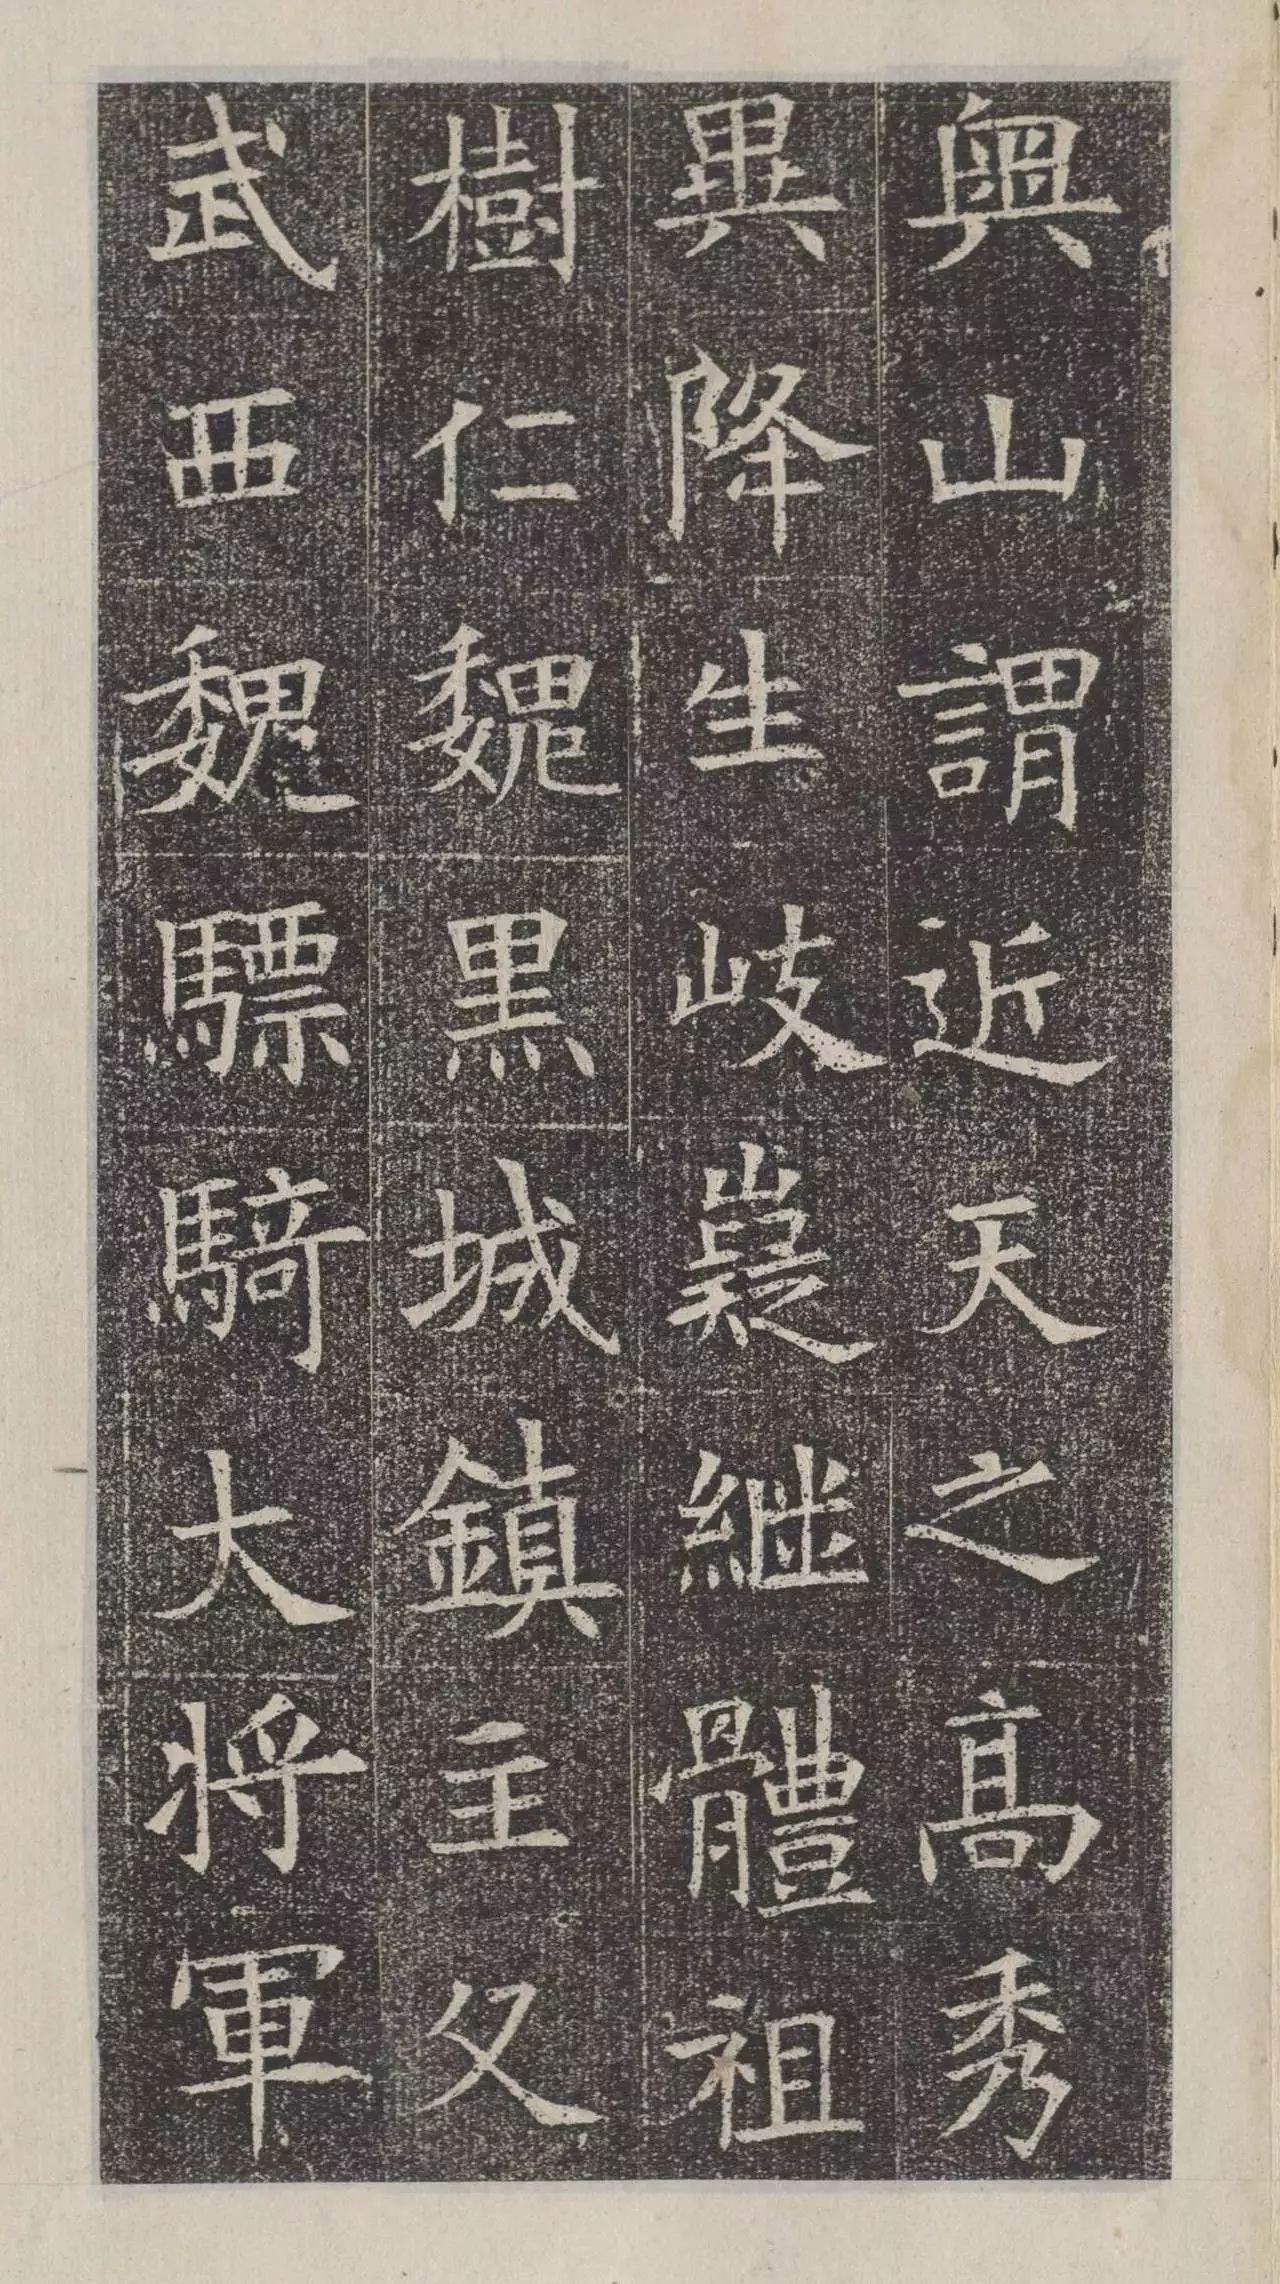 輿山謂近天之高秀
異降生岐嶷継體祖
樹仁魏黑城鎮主父
武西魏驃騎大将軍